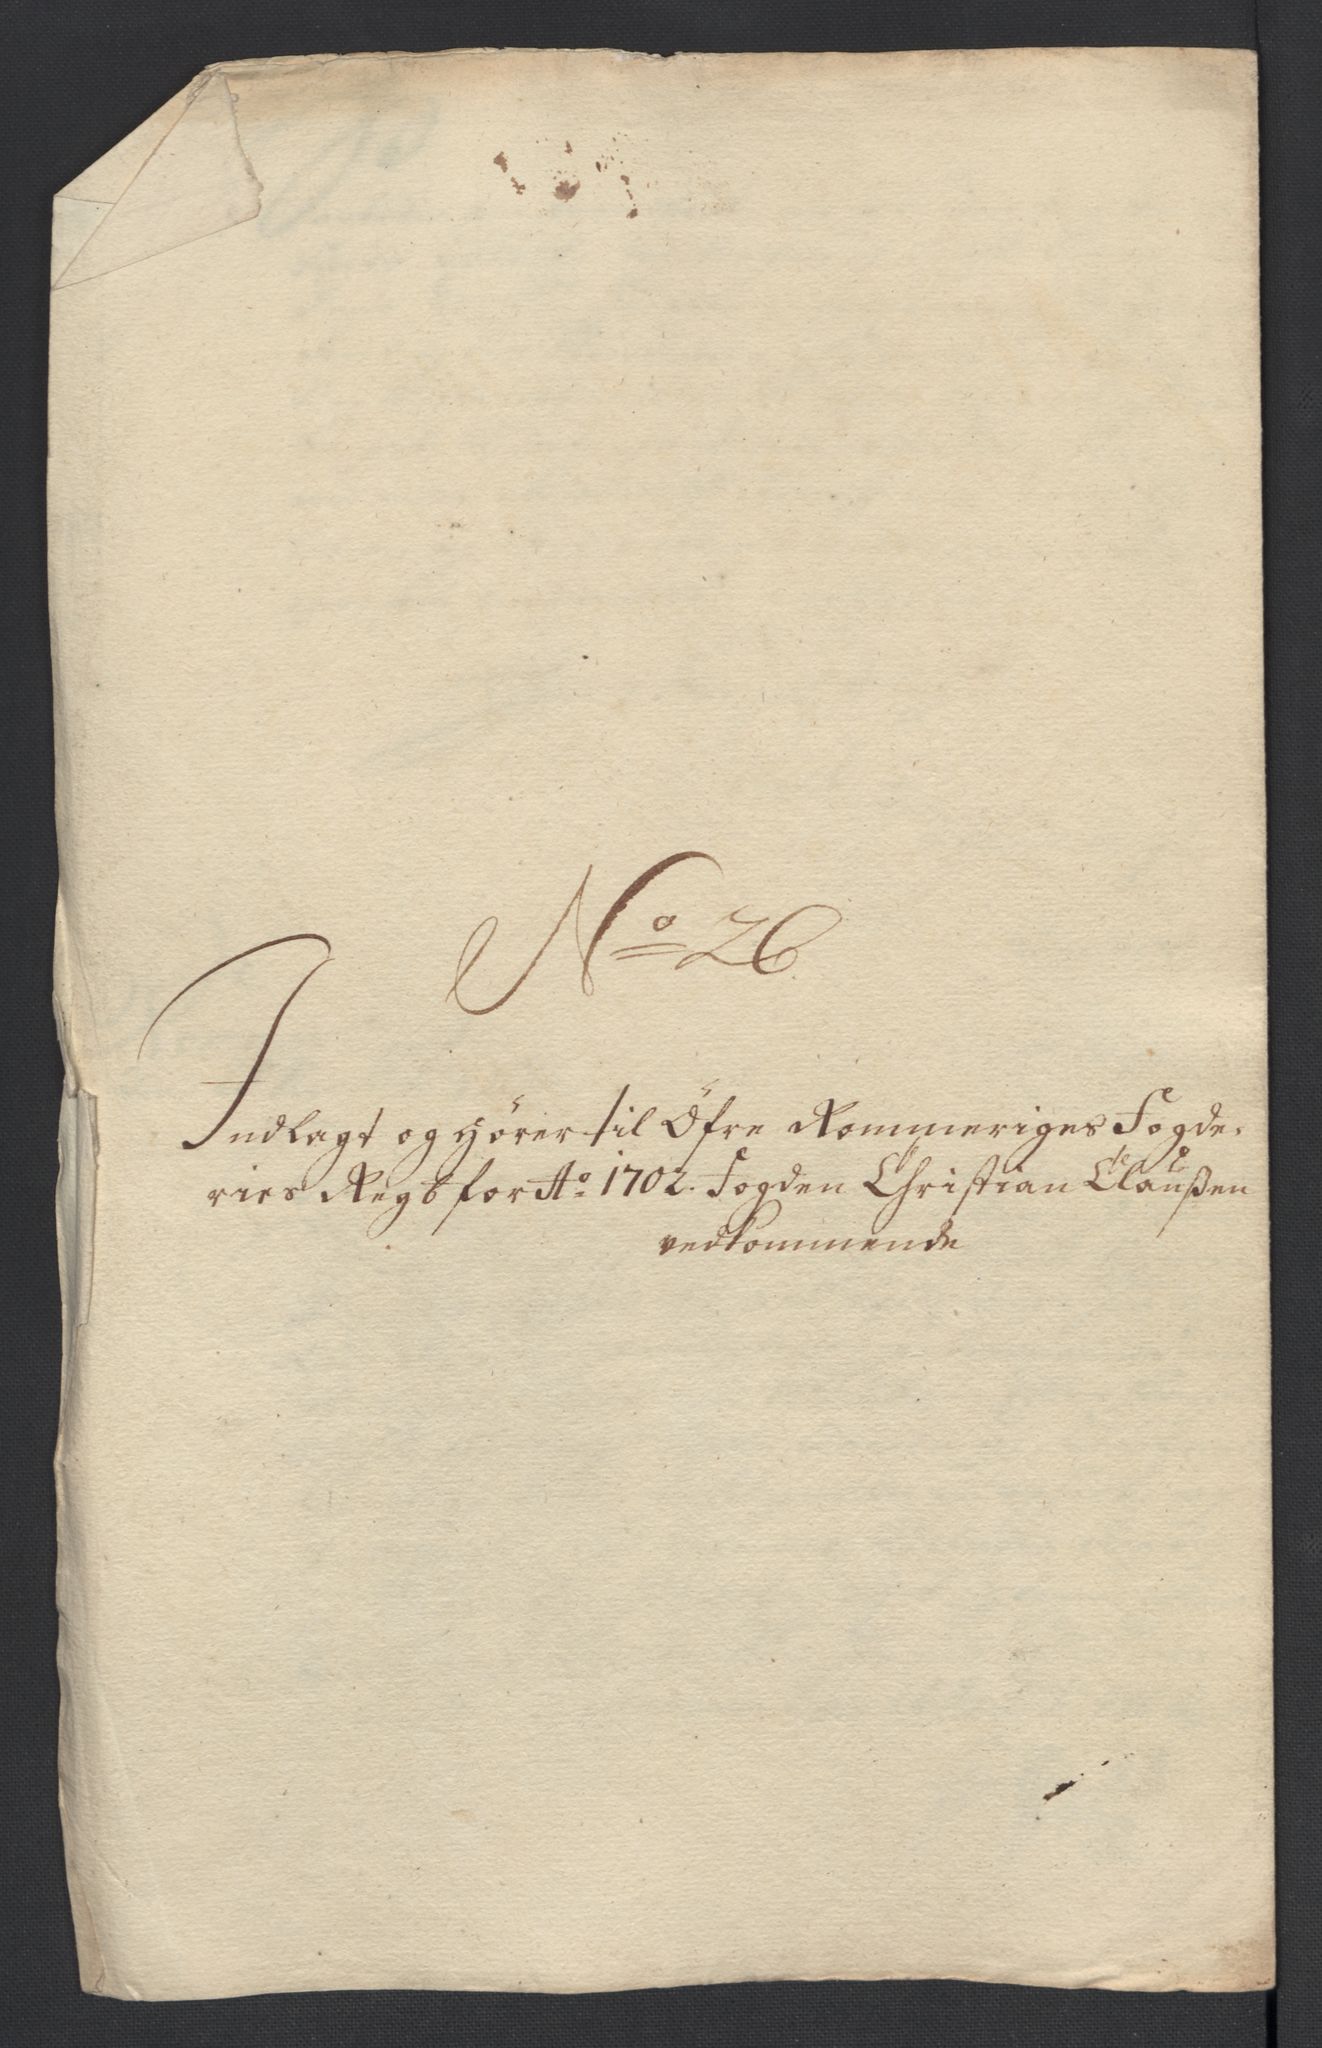 No 26
Indlagt og hører til Øfre Rommeriges Fogde-
ries Regb for Ao 1702. Fogden Christian Claußen
vedkommende